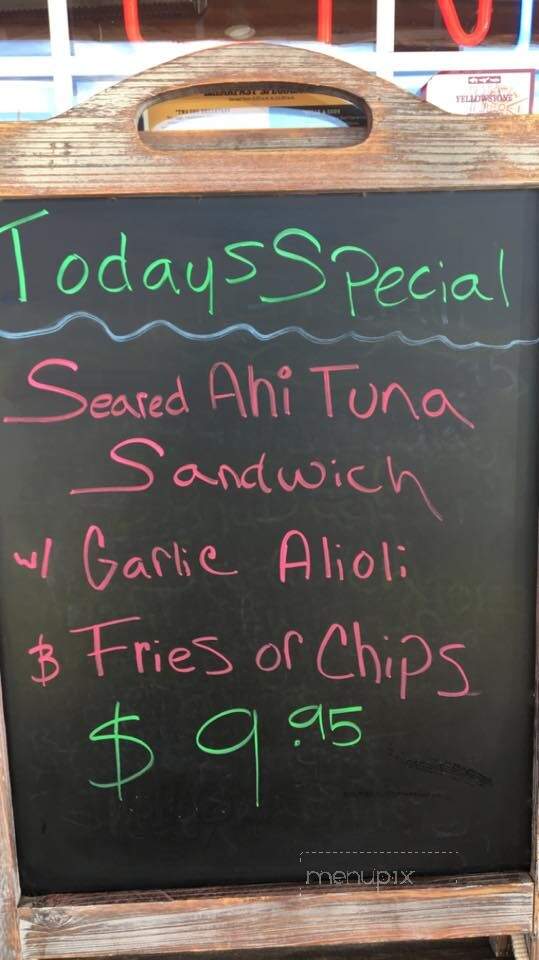 YELLOWSTONE
Todays Special
Seared Ahi Tuna
Sandwich
w/ Garlic Alioli
& Fries or Chips
$9.95
menupix